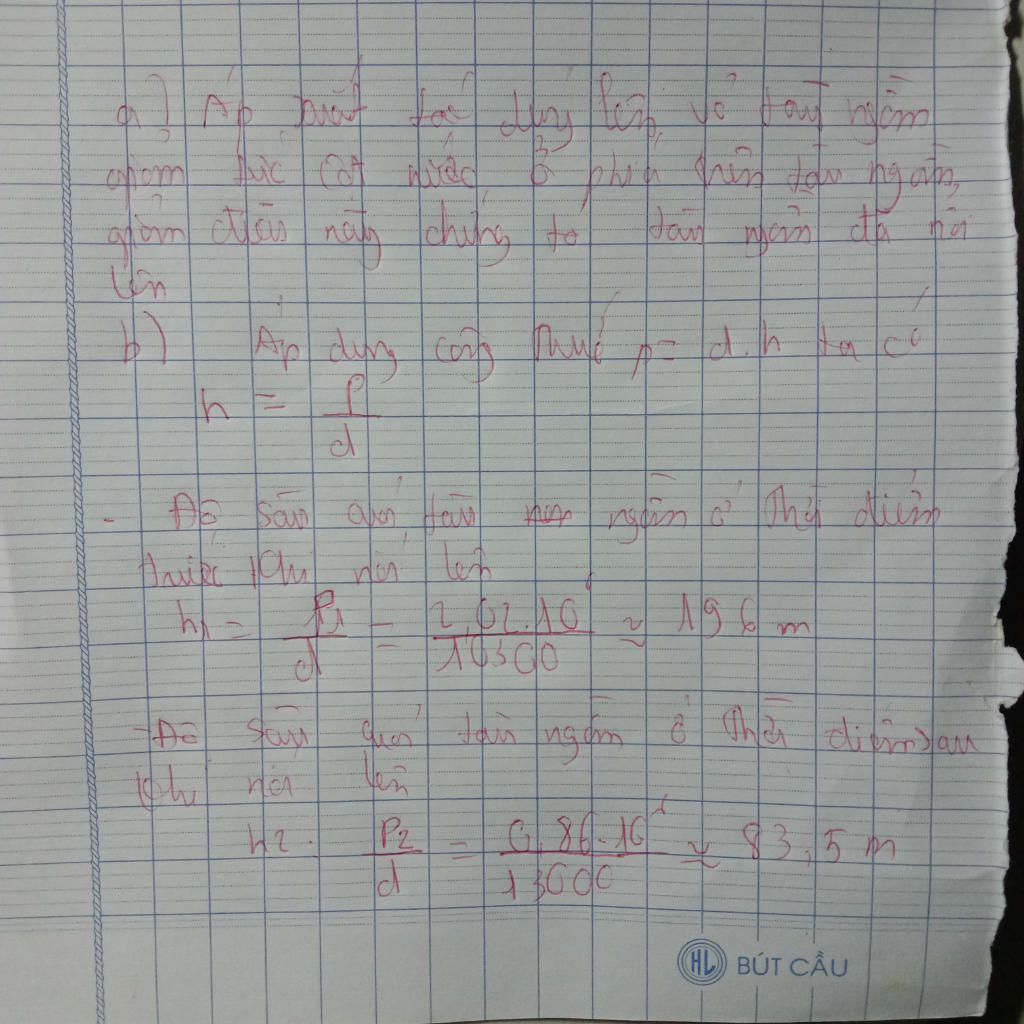 a) Áp suất tác dụng lên vỏ tàu ngầm
giảm tức cột nước ở phía trên tàu ngầm
giảm điều này chứng tỏ tàu ngầm đã nổi
lên
b) Áp dụng công thức p = d.h ta có
h = p/d
- Độ sâu của tàu ngầm ở thời điểm
trước khi nổi lên
h1 = P1/d = 2,02.10^6/10300 ≈ 196 m
- Độ sâu của tàu ngầm ở thời điểm sau
khi nổi lên
h2 P2/d = 0,86.10^6/13000 ≈ 83,5 m
HL BÚT CẦU